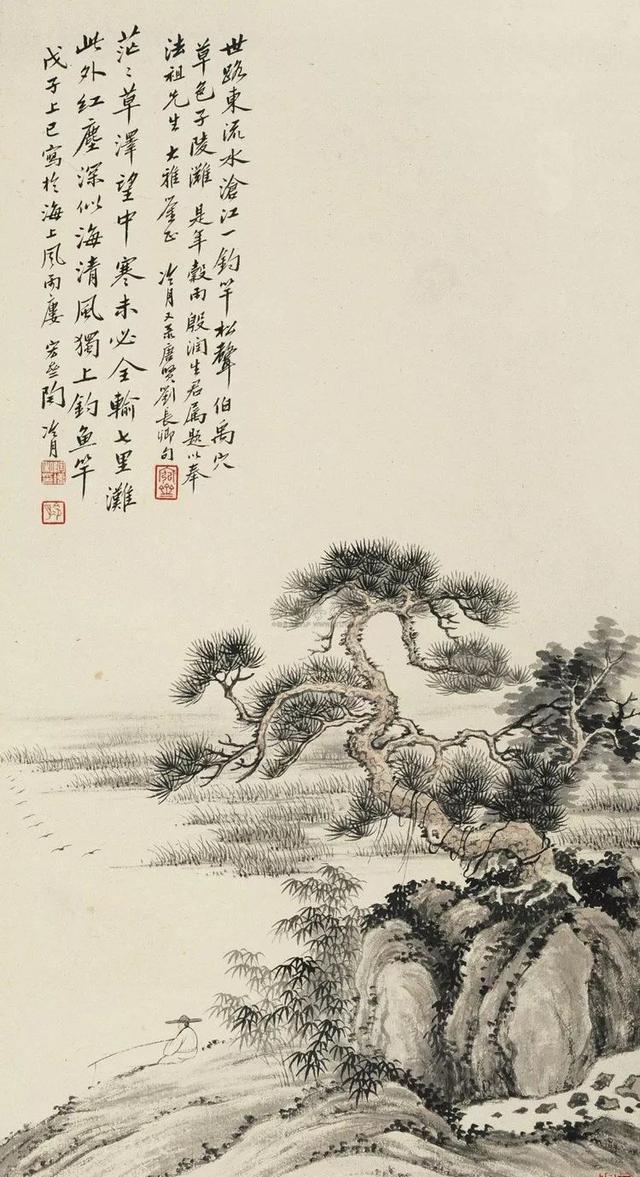 世路東流水滄江一釣竿松聲伯禹穴
草色子陵灘 是年穀雨殷润生君属题以奉
法祖先生大雅詧正 冷月又录唐賢劉長卿句
茫〻草澤望中寒未必全輸七里灘
此外紅塵深似海清風獨上釣魚竿
戊子上巳寫於海上風雨廔 宏斋陶冷月